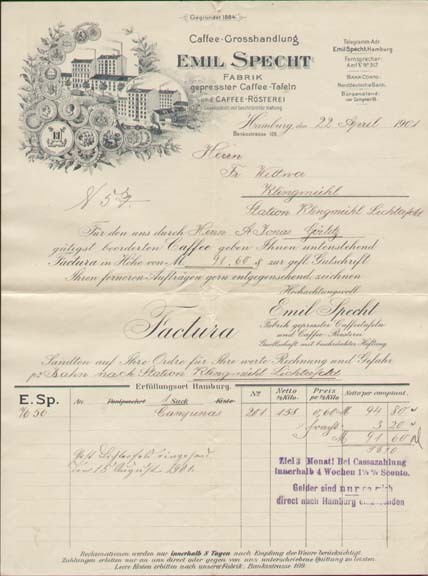 Gegründet 1884.
Caffee-Grosshandlung
EMIL SPECHT
FABRIK
gepresster Caffee-Tafeln
und CAFFEE-RÖSTEREI
Gesellschaft mit beschränkter Haftung
Telegramm-Adr.
Emil Specht, Hamburg
Fernsprecher:
Amt V Nº 317
Bank-Conto:
Norddeutsche Bank.
Börsenstand:
Hamburg, den 22 April 1901
Banksstrasse 109.
Herrn
Fr Wittwer
Klingmühl
Station Klingmühl Lichterfeld
Für den uns durch Herrn A. Jonas Görlitz
gütigst beorderten Caffee geben Ihnen untenstehend
Factura in Höhe von M. 91.60 zur gefl. Gutschrift
Ihren ferneren Aufträgen gern entgegensehend zeichnen
Hochachtungsvoll
Emil Specht
Fabrik gepresster Caffeetafeln
und Caffee-Rösterei
Gesellschaft mit beschränkter Haftung
Factura
Sandten auf Ihre Ordre für Ihre werte Rechnung und Gefahr
pr. Bahn nach Station Klingmühl Lichterfeld
Erfüllungsort Hamburg.
Nº
Netto ½ Kilo.
Preis per ½ Kilo.
Netto per comptant.
E. Sp.
An
1 Sack
Kiste
Campinas
201
158
0,60
M 94 80
3 20
M 91 60
Ziel 3 Monat! Bei Cassazahlung
innerhalb 4 Wochen 1½ % Sconto.
Gelder sind nur
direct nach Hamburg
Reclamationen werden nur innerhalb 8 Tagen nach Empfang der Waare berücksichtigt.
Zahlungen erbitten nur an uns direct oder gegen von uns unterschriebene Quittung zu leisten.
Leere Kisten erbitten nach unserer Fabrik, Banksstrasse 109.